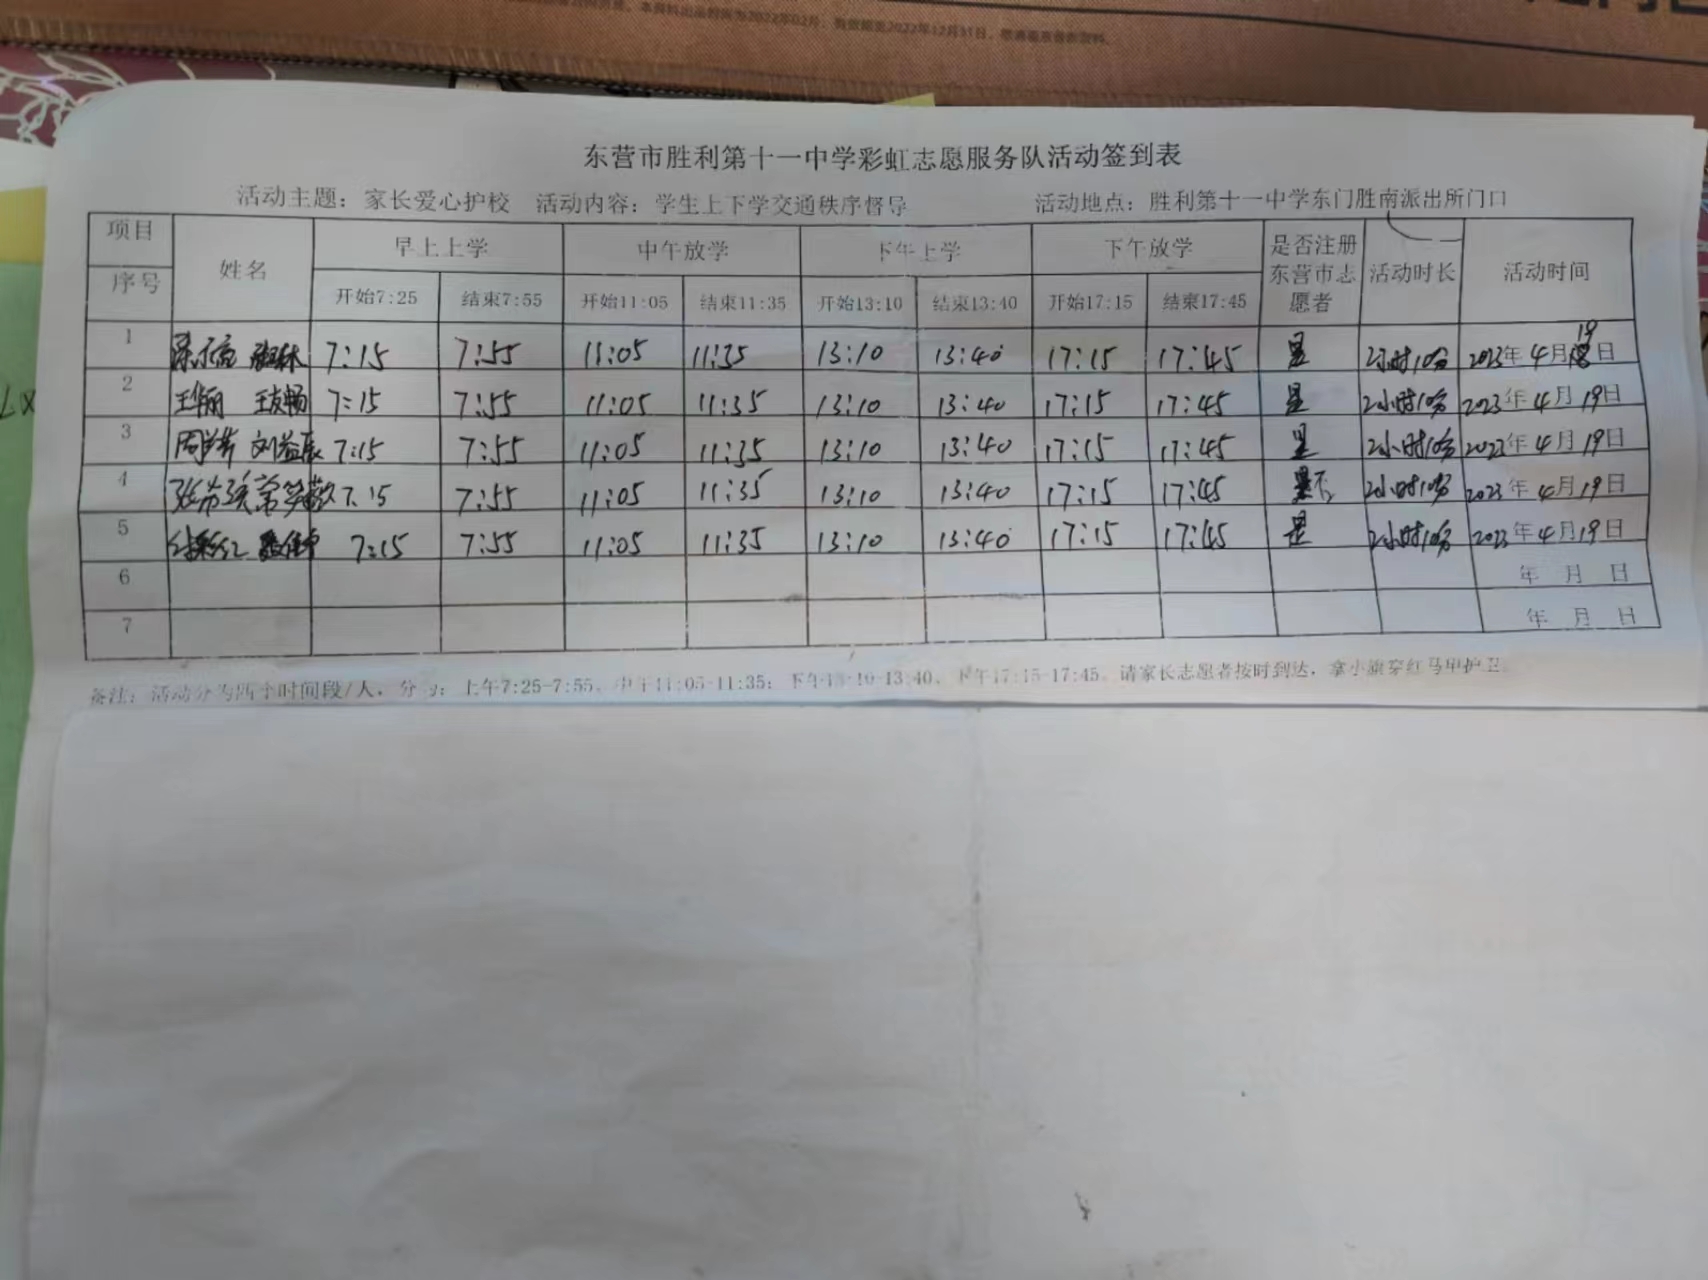 本资料出品时间为2022年02月，有效期至2022年12月31日，敬请留意最新资料。
东营市胜利第十一中学彩虹志愿服务队活动签到表
活动主题：家长爱心护校 活动内容：学生上下学交通秩序督导 活动地点：胜利第十一中学东门胜南派出所门口
项目 序号 姓名 早上上学 中午放学 下午上学 下午放学 是否注册东营市志愿者 活动时长 活动时间
开始7:25 结束7:55 开始11:05 结束11:35 开始13:10 结束13:40 开始17:15 结束17:45
1 7:15 7:55 11:05 11:35 13:10 13:40 17:15 17:45 是 2小时10分 2023年4月19日
2 王华丽 王友畅 7:15 7:55 11:05 11:35 13:10 13:40 17:15 17:45 是 2小时10分 2023年4月19日
3 刘益辰 7:15 7:55 11:05 11:35 13:10 13:40 17:15 17:45 是 2小时10分 2023年4月19日
4 7:15 7:55 11:05 11:35 13:10 13:40 17:15 17:45 否 2小时10分 2023年4月19日
5 7:15 7:55 11:05 11:35 13:10 13:40 17:15 17:45 是 2小时10分 2023年4月19日
6 年 月 日
7 年 月 日
备注：活动分为四个时间段/人，分为：上午7:25-7:55、中午11:05-11:35；下午13:10-13:40、下午17:15-17:45。请家长志愿者按时到达，拿小旗穿红马甲护卫。